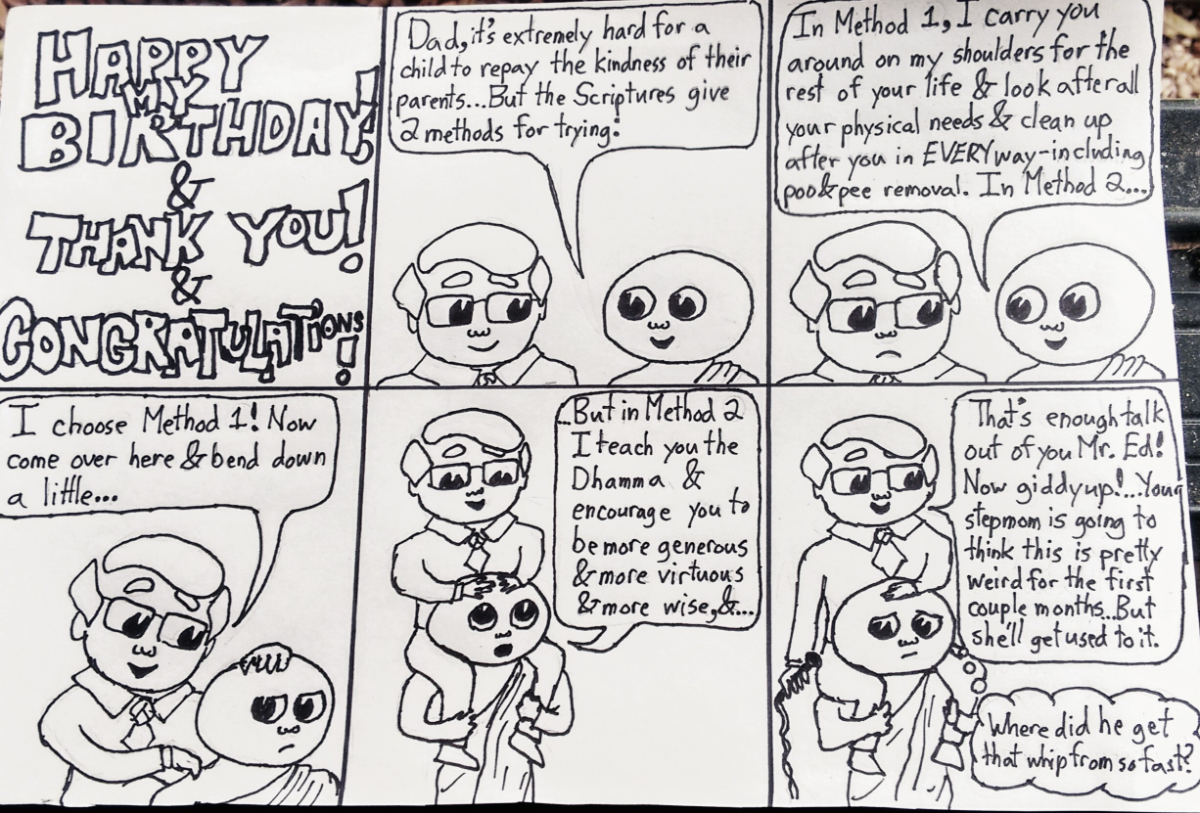 HAPPY
MY
BIRTHDAY!
&
THANK YOU!
&
CONGRATULATIONS!
Dad, it's extremely hard for a
child to repay the kindness of their
parents...But the Scriptures give
2 methods for trying!
In Method 1, I carry you
around on my shoulders for the
rest of your life & look after all
your physical needs & clean up
after you in EVERY way-including
poo&pee removal. In Method 2...
I choose Method 1! Now
come over here & bend down
a little...
...But in Method 2
I teach you the
Dhamma &
encourage you to
be more generous
& more virtuous
& more wise, &...
That's enough talk
out of you Mr. Ed!
Now giddyup!...Your
stepmom is going to
think this is pretty
weird for the first
couple months...But
she'll get used to it.
Where did he get
that whip from so fast?